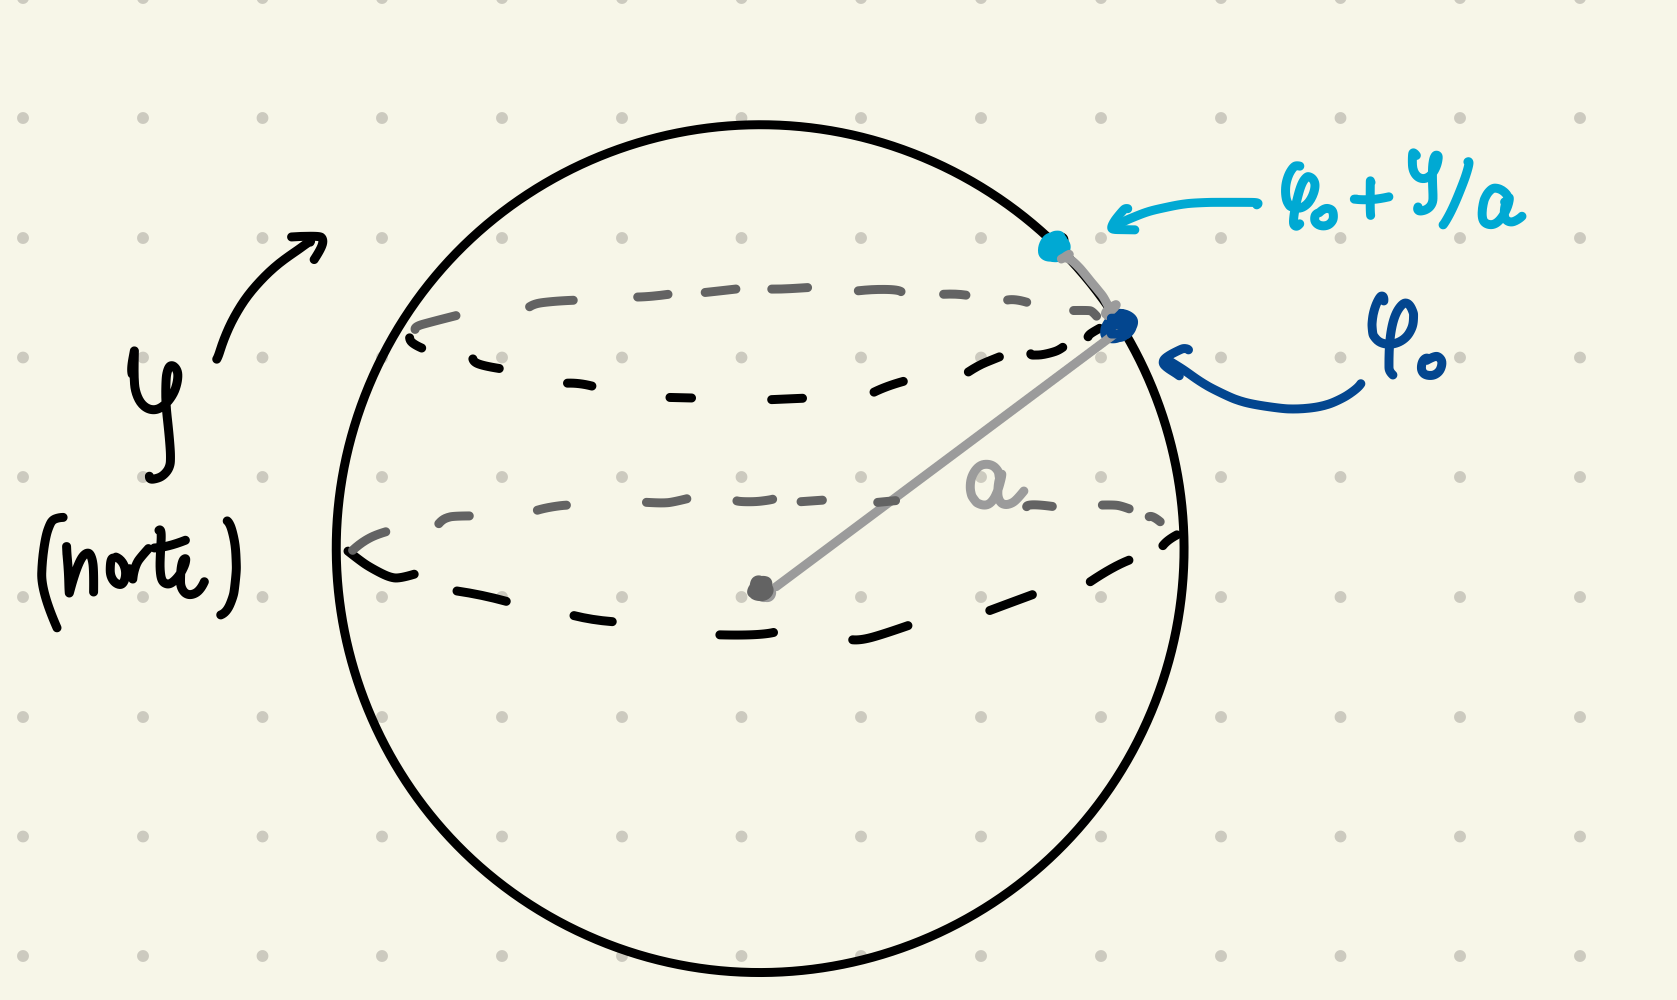 φ₀ + y/a
φ₀
y
(norte)
a